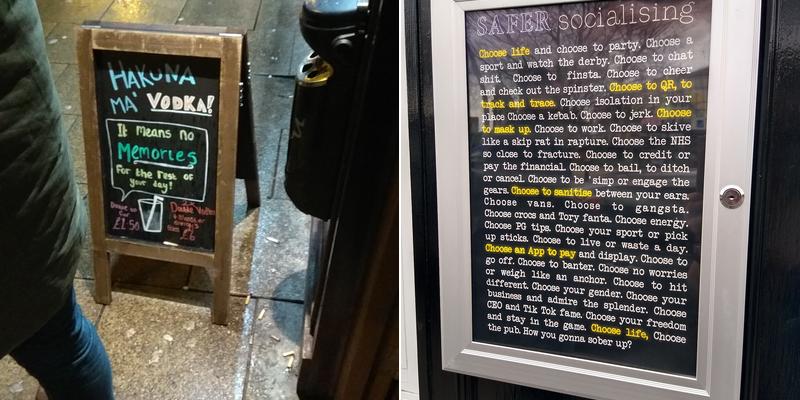 HAKUNA
MA' VODKA!
It means no
Memories
For the rest of
your day!
£1.50
Double Vodka
£6
SAFER socialising
Choose life and choose to party. Choose a
sport and watch the derby. Choose to chat
shit. Choose to finsta. Choose to cheer
and check out the spinster. Choose to QR, to
track and trace. Choose isolation in your
place Choose a kebab. Choose to jerk. Choose
to mask up. Choose to work. Choose to skive
like a skip rat in rapture. Choose the NHS
so close to fracture. Choose to credit or
pay the financial. Choose to bail, to ditch
or cancel. Choose to be 'simp or engage the
gears. Choose to sanitise between your ears.
Choose vans. Choose to gangsta.
Choose crocs and Tory fanta. Choose energy.
Choose PG tips. Choose your sport or pick
up sticks. Choose to live or waste a day.
Choose an App to pay and display. Choose to
go off. Choose to banter. Choose no worries
or weigh like an anchor. Choose to hit
different. Choose your gender. Choose your
business and admire the splendor. Choose
CEO and Tik Tok fame. Choose your freedom
and stay in the game. Choose life, Choose
the pub. How you gonna sober up?